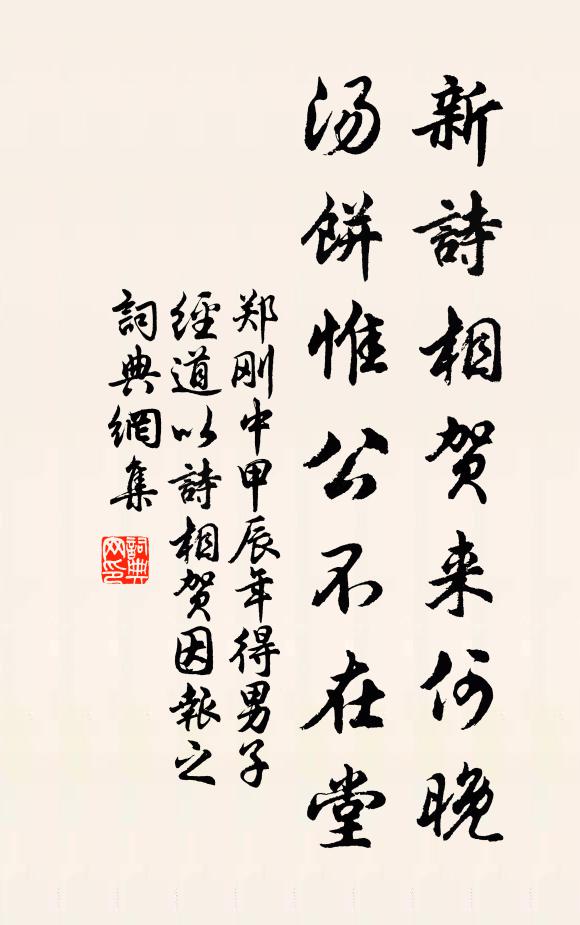 新詩相贺来何晚
汤餅惟公不在堂
郑刚中甲辰年得男子
經道以詩相贺因報之
詞典網集
詞典網印